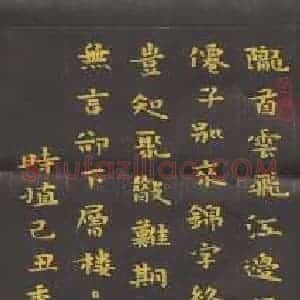 隴首雲飛江邊
僊子別來錦字終
豈知聚散難期
無言却下層樓
時值己丑季
shufaziliao.com